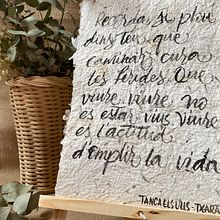 Recorda, si plou
dins teu, que
caminar cura
les ferides. Que
viure viure no
és estar vius, viure
és l'actitud
d'omplir la vida
TANCA ELS ULLS - TXARANGO